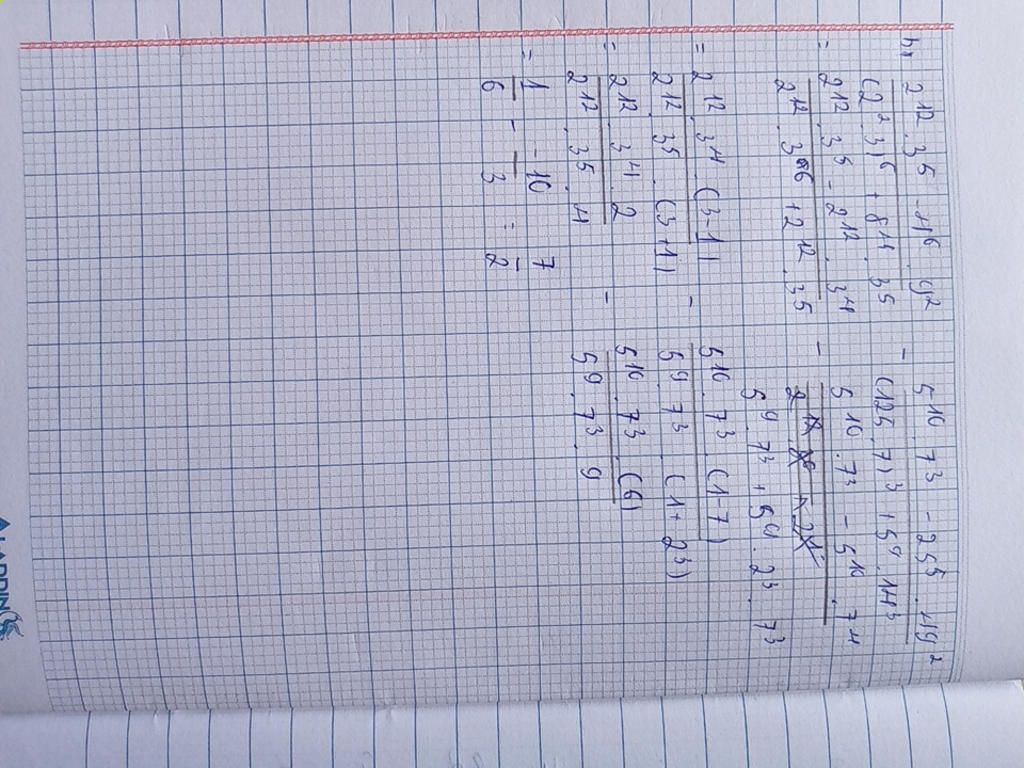 b) 2^12 . 3^5 - 4^6 . 9^2 - 5^10 . 7^3 - 25^5 . 49^2
(2^2 . 3)^6 + 8^4 . 3^5 (125 . 7)^3 + 5^9 . 14^3
= 2^12 . 3^5 - 2^12 . 3^4 - 5^10 . 7^3 - 5^10 . 7^4
2^12 . 3^6 + 2^12 . 3^5 5^9 . 7^3 + 5^9 . 2^3 . 7^3
= 2^12 . 3^4 . (3-1) - 5^10 . 7^3 . (1-7)
2^12 . 3^5 . (3+1) 5^9 . 7^3 . (1 + 2^3)
= 2^12 . 3^4 . 2 - 5^10 . 7^3 . (6)
2^12 . 3^5 . 4 5^9 . 7^3 . 9
= 1 - -10 : 7
6 3 2
ALADDIN